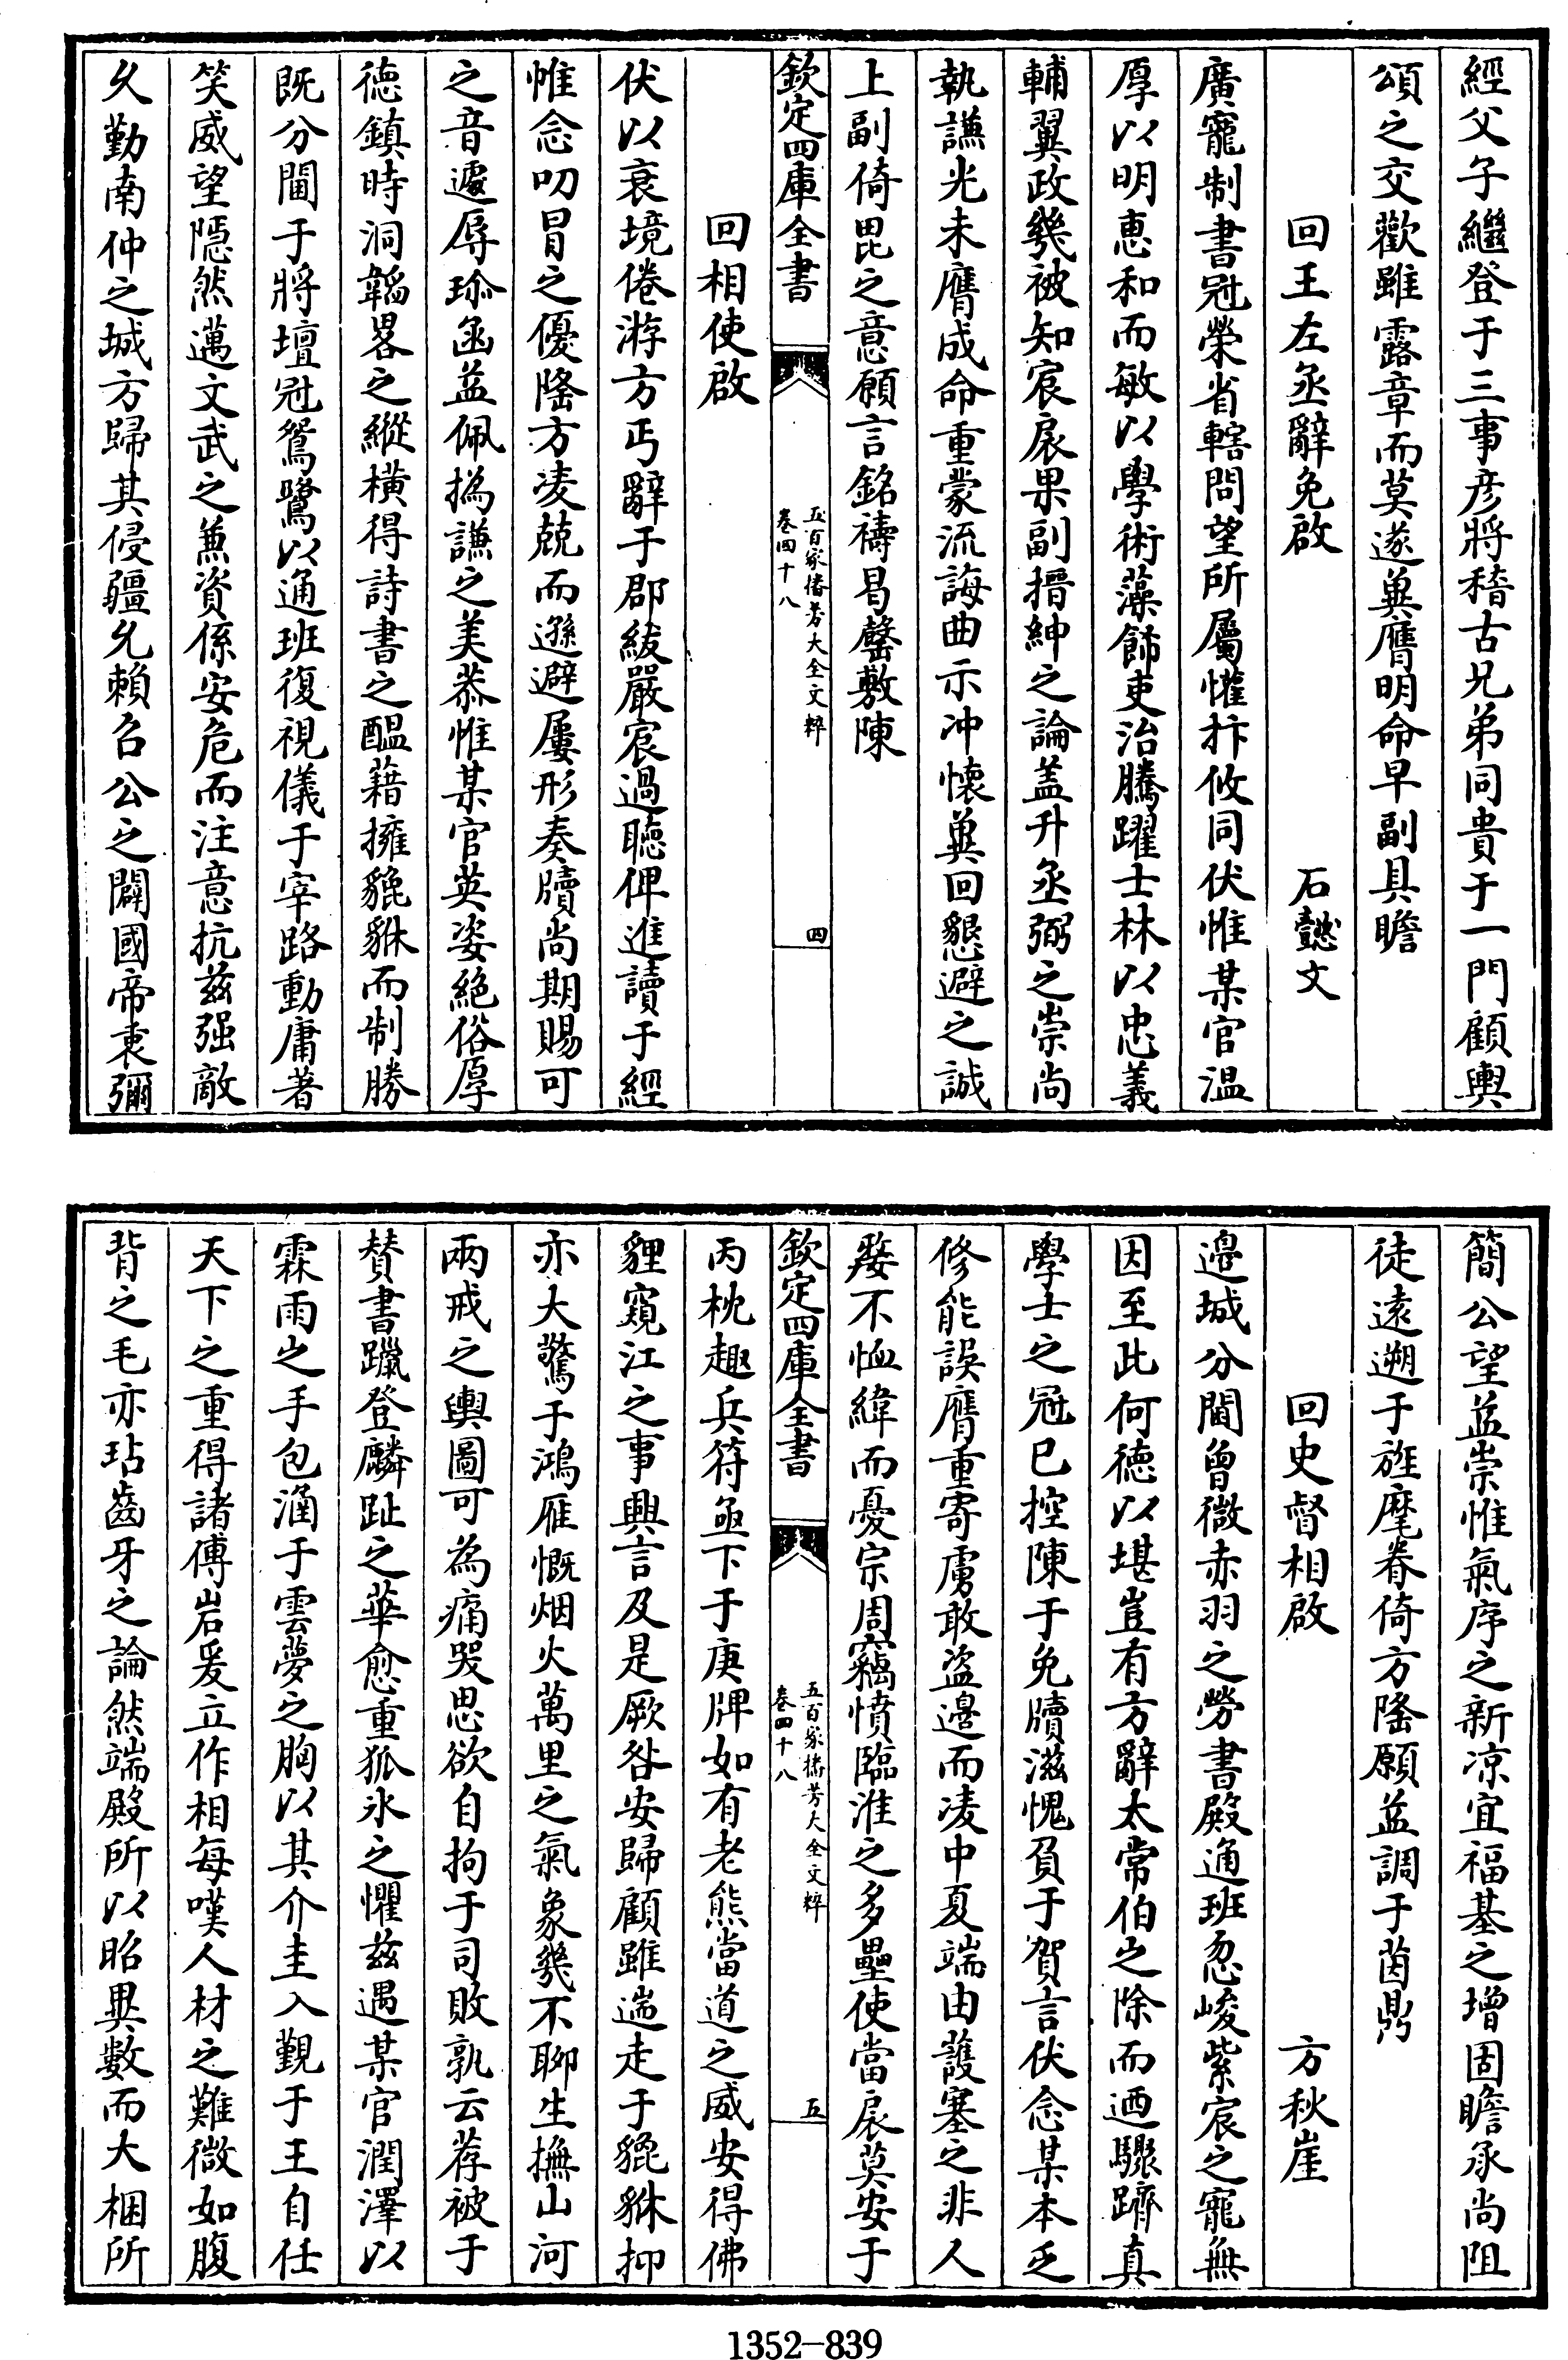 經父子繼登于三事彦將稽古兄弟同貴于一門顧輿
頌之交歡雖露章而莫遂冀膺明命早副具瞻
回王左丞辭免啟
石懿文
廣寵制書冠榮省轄問望所屬懽抃攸同伏惟某官温
厚以明恵和而敏以學術藻飾吏治騰躍士林以忠義
輔翼政幾被知宸扆果副搢紳之論葢升丞弼之崇尚
執謙光未膺成命重蒙流誨曲示冲懷冀回懇避之誠
上副倚毘之意願言銘禱曷罄敷陳
欽定四庫全書
五百家播芳大全文粹
卷四十八
四
回相使啟
伏以衰境倦游方丐辭于郡紱嚴宸過聴俾進讀于經
帷念叨冒之優隆方凌兢而遜避屢形奏牘尚期賜可
之音遽辱瑜函益佩撝謙之美恭惟某官英姿絶俗厚
德鎮時洞韜畧之縱横得詩書之醖藉擁貔貅而制勝
既分閫于將壇冠鴛鷺以通班復視儀于宰路動庸著
笑威望隠然邁文武之兼資係安危而注意抗兹强敵
久勤南仲之城方歸其侵疆允賴召公之闢國帝衷彌
簡公望益崇惟氣序之新凉宜福基之增固瞻承尚阻
徒遠遡于旌麾眷倚方隆願益調于茵鼎
回史督相啟
方秋崖
邉城分閫曾微赤羽之勞書殿通班忽峻紫宸之寵無
因至此何德以堪豈有方辭太常伯之除而迺驟躋真
學士之冠已控陳于免牘滋愧負于賀言伏念某本乏
修能誤膺重寄虜敢盗邉而凌中夏端由護塞之非人
嫠不恤緯而憂宗周竊憤臨淮之多壘使當扆莫安于
欽定四庫全書
五百家播芳大全文粹
卷四十八
五
丙枕趣兵符亟下于庚牌如有老熊當道之威安得佛
貍窺江之事興言及是厥咎安歸顧雖遄走于貔貅抑
亦大驚于鴻雁慨烟火萬里之氣象幾不聊生撫山河
兩戒之輿圖可為痛哭思欲自拘于司敗孰云荐被于
賛書躐登麟趾之華愈重狐氷之懼兹遇某官潤澤以
霖雨之手包涵于雲夢之胸以其介圭入覲于王自任
天下之重得諸傅岩爰立作相每嘆人材之難微如腹
背之毛亦玷齒牙之論然端殿所以昭異數而大梱所
1352-839